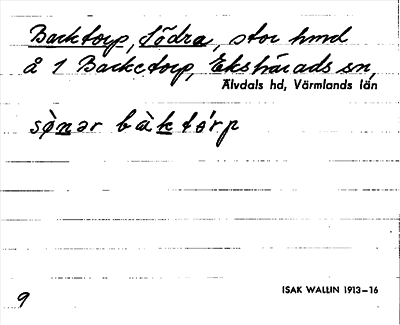 Backtorp, Södra, stor hmd
å 1 Backctorp, Ekshärads sn,
Älvdals hd, Värmlands län
sø̀nər bàktórp
ISAK WALLIN 1913–16
9